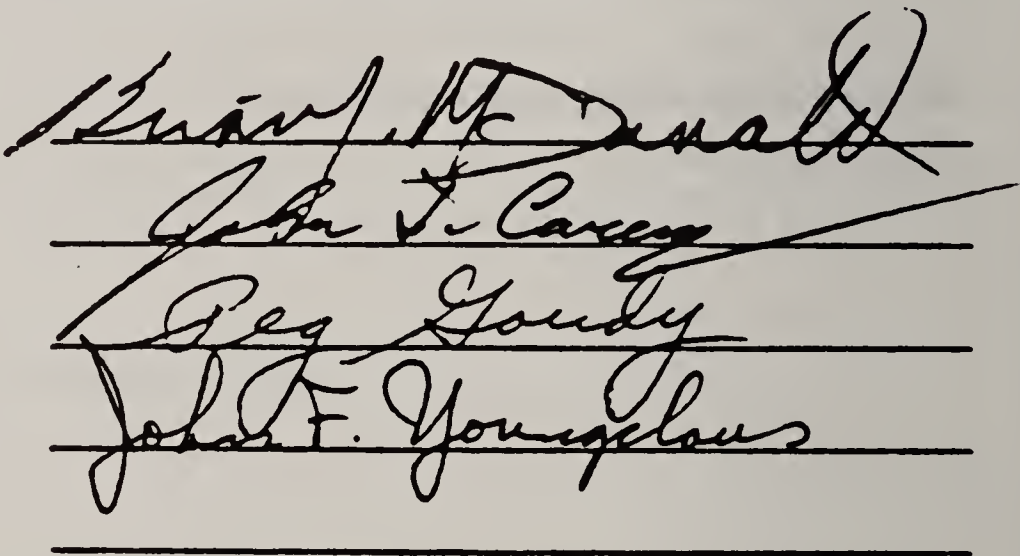 Brian J. McDonald
John F. Carey
Peg Goudy
John F. Youngclaus